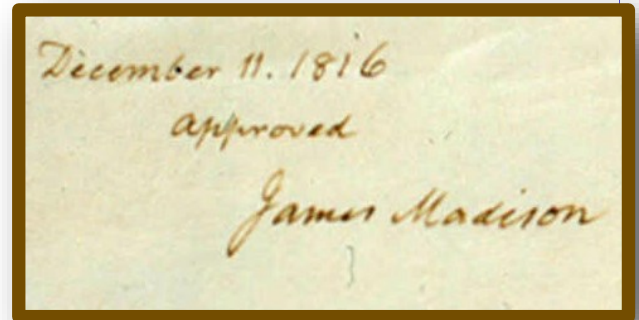 December 11. 1816
approved
James Madison